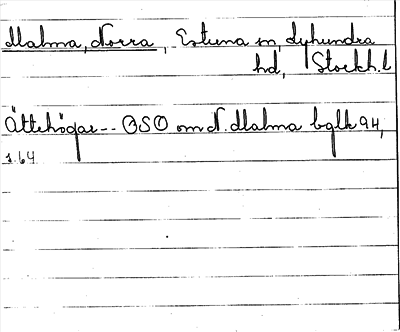 Malma, Norra, Estuna sn, Lyhundra
hd, Stockh.l
Ättehögar -- OSO om N. Malma bglk 94,
s. 64